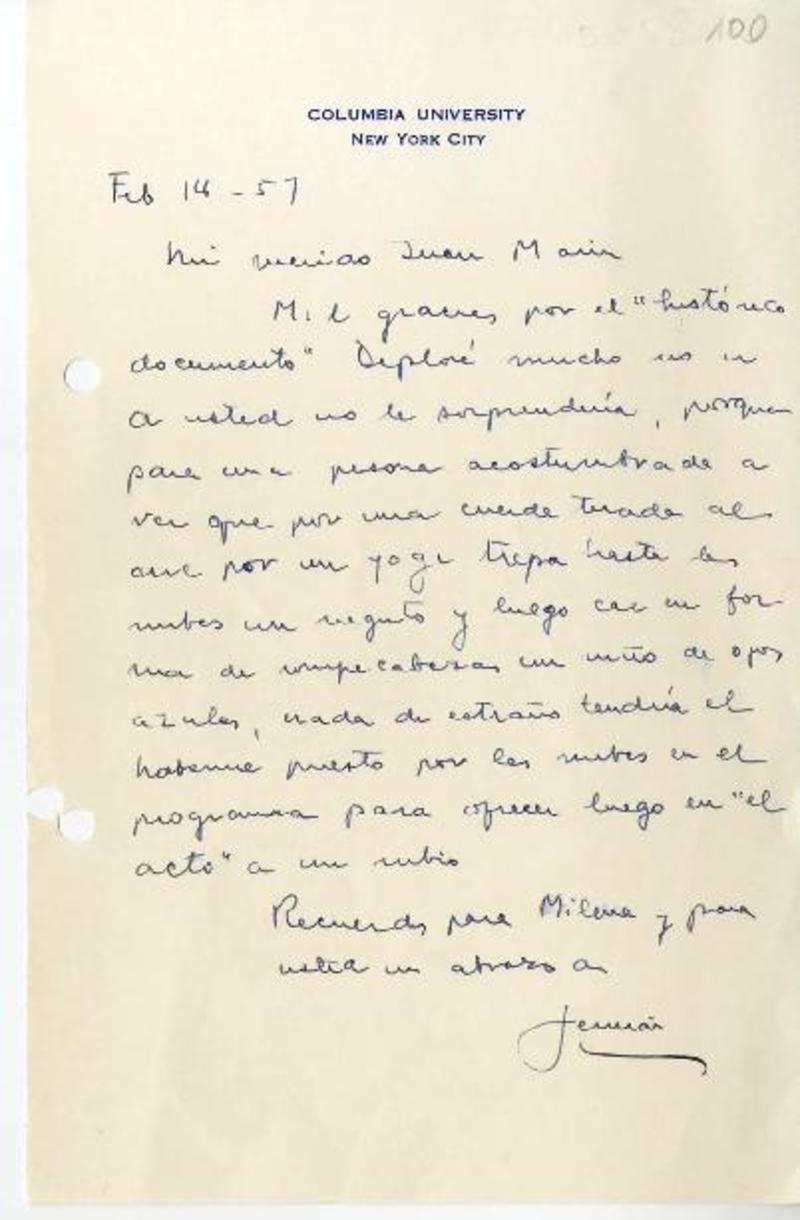 100
COLUMBIA UNIVERSITY
NEW YORK CITY
Feb 14 - 57
Mi querido Juan Marin
Mil gracias por el "histórico
documento" Deploré mucho no ir
A usted no le sorprendería, porque
para una persona acostumbrada a
ver que por una cuerda tirada al
aire por un yogi trepa hasta las
nubes un negrito y luego cae en for-
ma de rompecabezas un niño de ojos
azules, nada de extraño tendría el
haberme puesto por las nubes en el
programa para ofrecer luego en "el
acto" a un rubio
Recuerdos para Milena y para
usted un abrazo de